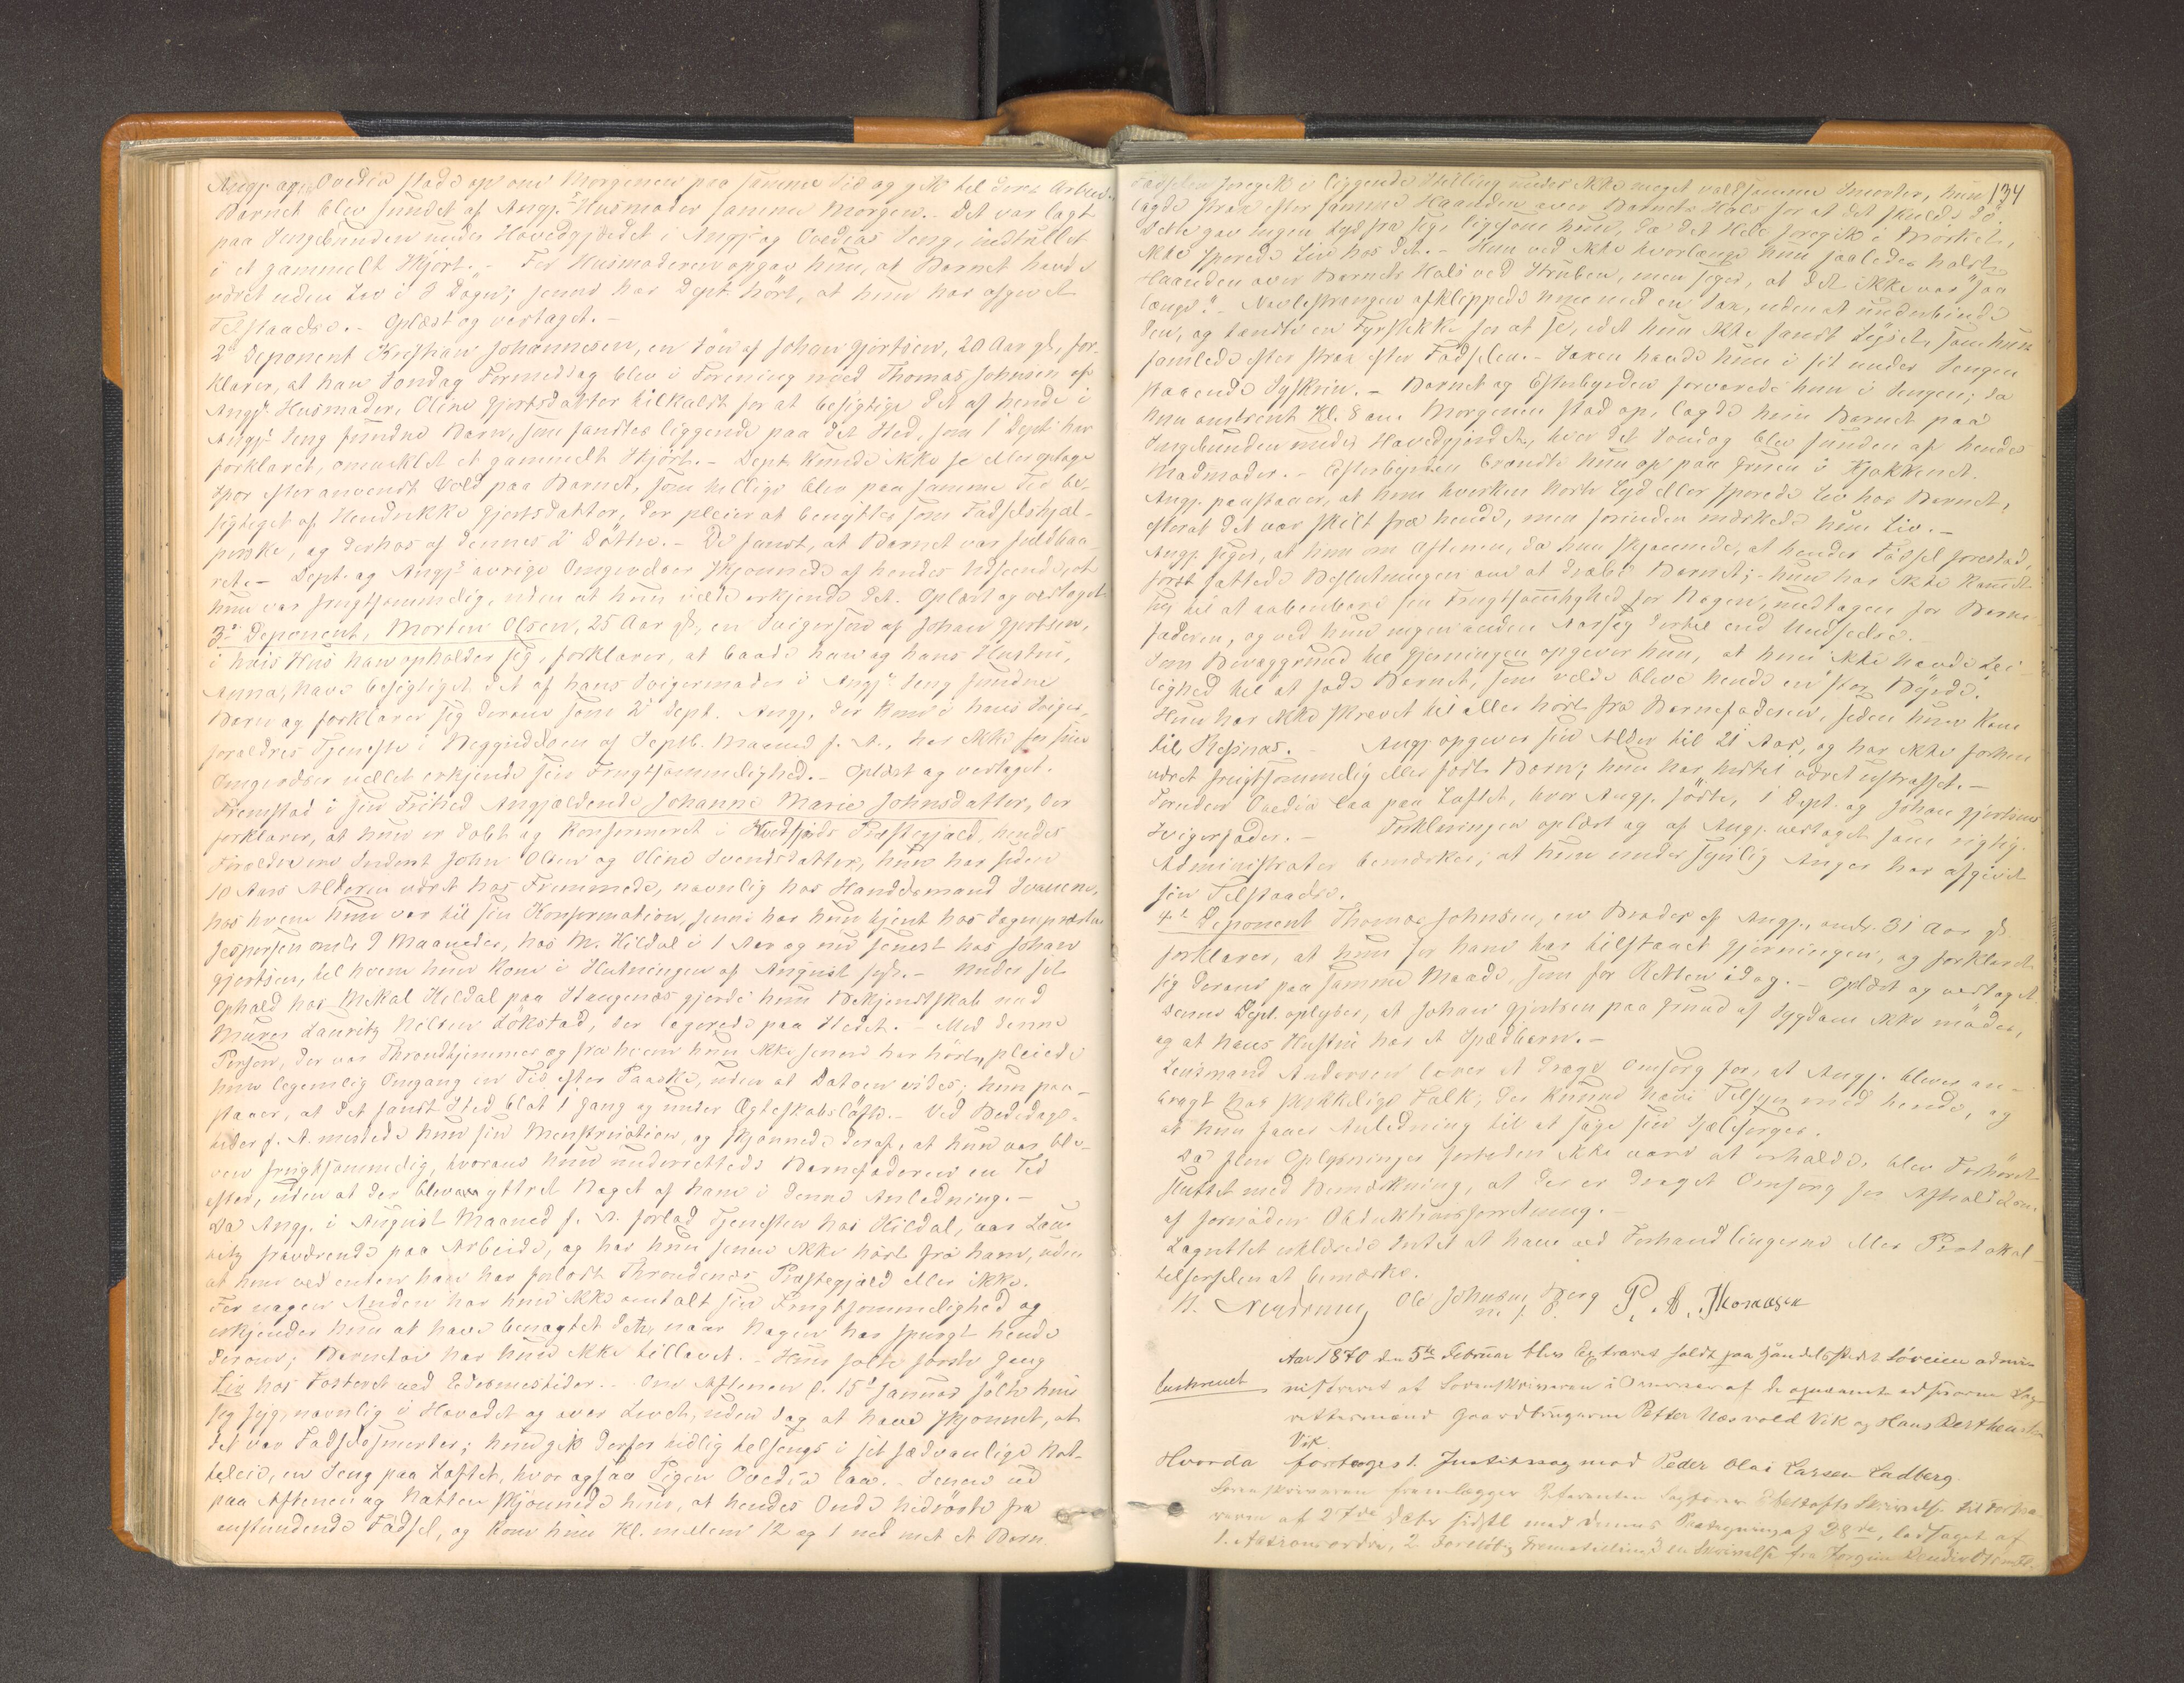 Angj. og Ovedia stode op om Morgenen paa samme Tid og gik til deres Arbeide.
Barnet blev fundet af Angj.s Husmoder samme Morgen. Det var lagt
paa Sengebunden under Hovedgjærdet i Angj.s og Ovedias Seng, indtullet
i et gammelt Skjört. - For Husmoderen opgav hun, at Barnet havde
været uden Liv i 3 Dögn; senere har Dept. hört, at hun har afgivet
Tilstaaelse. - Oplæst og vedtaget. -
2d Deponent Kristian Johannesen, en Sön af Johan Gjertsen, 20 Aar gl., for-
klarer, at han Söndag Formiddag blev i Forening med Thomas Johnsen af
Angj.s Husmoder, Oline Gjertsdatter tilkaldt for at besigtige det af hende i
Angj.s Seng fundne Barn, som fandtes liggende paa det Sted, som 1 Dept. har
forklaret, omviklet et gammelt Skjört. - Dept. kunde ikke se eller opdage
Spor efter anvendt Vold paa Barnet, som tillige blev paa samme Tid be-
sigtiget af Hendrikke Gjertsdatter, der pleier at benyttes som Födselshjæl-
perske, og derhos af dennes 2 Döttre. - De fandt, at Barnet var fuldbaa-
ret. - Dept. og Angj.s övrige Omgivelser skjönnede af hendes Udseende, at
hun var frugtsommelig, uden at hun vilde erkjende det. Oplæst og vedtaget.
3die Deponent, Morten Olsen, 25 Aar gl., en Svigersön af Johan Gjertsen,
i hvis Hus han opholder sig, forklarer, at baade han og hans Hustru,
Anna, have besigtiget det af hans Svigermoder i Angj.s Seng fundne
Barn og forklarer sig derom som 2d Dept. Angj. der kom i hans Sviger-
forældres Tjeneste i Begyndelsen af Septb. Maaned f. A., har ikke for sine
Omgivelser villet erkjende sin Frugtsommelighed. - Oplæst og vedtaget.
Fremstod i sin Frihed Angjældende Johanne Marie Johnsdatter, der
forklarer, at hun er döbt og konfirmeret i Kvedfjords Præstegjæld, hendes
Forældre ere Inderst John Olsen og Oline Svendsdatter, hun har siden
10 Aars Alderen været hos Fremmede, navnlig hos Handelsmand
hos hvem hun var til sin Konfirmation, senere har hun tjent hos Sogneprest
Jespersen omtr. 9 Maaneder, hos M. Kildal i 1 Aar og nu senest hos Johan
Gjertsen, til hvem hun kom i Slutningen af August sidst. - Under sit
Ophold hos Mikal Kildal paa Staugenæs gjorde hun Bekjendtskab med
Murer Lauritz Nilsen Lökstad, der logerede paa Stedet. - Med denne
Person, der var Throndhjemmer og fra hvem hun ikke senere har hört, pleiede
hun legemlig Omgang en Tid efter Paaske, uden at Datoen vides; hun paa-
staaer, at det fandt Sted blot 1 Gang og under Ægteskabslöfte. - Ved Bededags-
tider f. A. mistede hun sin Menstruation, og skjönnede deraf, at hun var ble-
ven frugtsommelig, hvorom hun underrettede Barnefaderen en Tid
efter, uden at der blev yttret Noget af ham i denne Anledning. -
Da Angj. i August Maaned f. A. forlod Tjenesten hos Kildal, var Lau-
ritz fraværende paa Arbeide, og har hun senere ikke hört fra ham, uden
at hun ved enten han har forladt Throndenes Præstegjæld eller ikke.
For nogen Anden har hun ikke omtalt sin Frugtsommelighed og
erkjender hun at have benægtet dette, naar Nogen har spurgt hende
derom; Barnetöi har hun ikke tillavet. - Hun folte förste Gang
Liv hos Fosteret ved Tider. - Om Aftenen d. 15de Januar fölte hun
sig syg, navnlig i Hovedet og over Livet, uden dog at have skjönnet, at
det var Födselssmerter; hun gik derfor tidlig tilsengs i sit sædvanlige Nat-
teleie, en Seng paa Loftet, hvor ogsaa Pigen Ovedia laa. - Senere ud
paa Aftenen og Natten skjönnede hun, at hendes Onde hidrörte fra
anstundende Födsel, og kom hun Kl. mellem 12 og 1 ned met et Barn.
134
Födselen foregik i liggende Stilling under ikke meget voldsomme Smerter, hun
lagde strax efter samme Haanden over Barnets Hals for at det skulde dö.
Dette gav ingen Lyd fra sig, ligesom hun, da det Hele foregik i Mörket,
ikke sporede Liv hos det. - Hun ved ikke hvorlænge hun saaledes holdt
Haanden over Barnets Hals ved Struben, men siger, at det ikke var "saa
længe". - Navlestrengen afklippede hun med en Sax, uden at underbinde
den, og tændte en Fyrstikke for at se, idet hun ikke fandt Töiet, som hun
famlede efter strax efter Födselen. - Saxen havde hun i sit under Sengen
staaende Syskrin. - Barnet og Efterbyrden forvarede hun i Sengen; da
hun omtrent Kl. 8 om Morgenen stod op, lagde hun Barnet paa
Sengebunden under Hovedgjærdet, hvor det Söndag blev funden af hendes
Madmoder. - Efterbyrden brændte hun op paa Gruen i Kjökkenet.
Angj. paastaaer, at hun hverken hörte Lyd eller sporede Liv hos Barnet,
efterat det var skilt fra hende, men forinden mærkede hun Liv. -
Angj. siger, at hun om Aftenen, da hun skjönnede, at hendes Födsel forestod,
först fattede Beslutningen om at dræbe Barnet; - hun har ikke kunnet
sig til at aabenbare sin Frugtsommelighed for Nogen, undtagen for Barne-
faderen, og ved hun ingen anden Aarsag dertil end Undseelse.
Som Bevæggrund til Gjerningen opgiver hun, at hun ikke havde Lei-
lighed til at föde Barnet, som vilde blive hende "en stor Byrde."
Hun har ikke skrevet til eller hört fra Barnefaderen, siden hun kom
til Resnæs. - Angj. opgiver sin Alder til 21 Aar, og har ikke forhen
været frugtsommelig eller född Börn; hun har hidtil været ustraffet. -
Foruden Ovedia laa paa Loftet, hvor Angj. födte, 1 Dept. og Johan Gjertsens
Svigerfader. - Forklaringen oplæst og af Angj. vedtaget som rigtig.
Administrator bemærker, at hun under synlig Anger har afgivet
sin Tilstaaelse.
4de Deponent Thomas Johnsen, en Broder af Angj., omtr. 31 Aar gl.
forklarer, at hun for ham har tilstaaet Gjerningen, og forklaret
sig derom paa samme Maade, som for Retten idag. - Oplæst og vedtaget.
Denne Dept. oplyser, at Johan Gjertsen paa Grund af Sygdom ikke möder,
og at hans Hustru har et Spædbarn. -
Lensmand Andersen lover at drage Omsorg for, at Angj. bliver an-
bragt hos skikkelige Folk, der kunne have Tilsyn med hende, og
at hun faaer Anledning til at söge sin Sjælesörger.
Da flere Oplysninger fortiden ikke vare at erholde, blev Forhöret
sluttet med Bemærkning, at der er draget Omsorg for Afholdelsen
af fornöden Obduktionsforretning. -
Lagrettet erklærede Intet at have ved Forhandlingerne eller Protokol-
tilförselen at bemærke.
Ole Johnsen Berg P. A. Thomassen
m. f. P.
Aar 1870 den 5te Februar blev Extraret holdt paa Handelsstedet Löveien admi-
nistreret af Sorenskriveren i Overvær af de opnævnte edsvorne Lag-
rettesmænd Gaardbrugerne Petter Næsvold Vik og Hans Bertheusen
Vik.
Hvorda foretoges 1. Justitssag mod Peder Olai Larsen Ladberg.
Sorenskriveren fremlægger Skrivelse til
af 27de dennes Paategning af 28de, ledsaget af
1. Actionsordre, 2 Foreløbig Fremstilling, 3 en Skrivelse fra